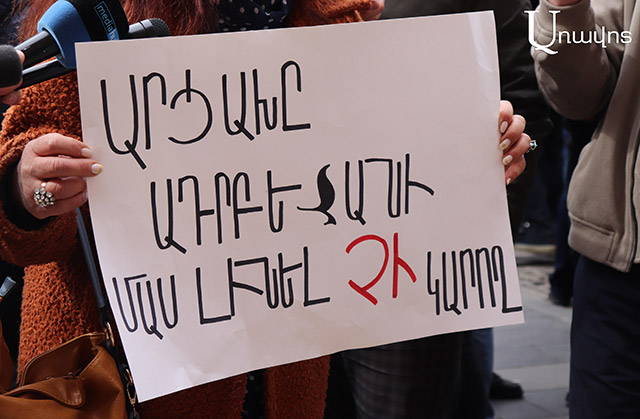 Առավոտ
media
ԱՐՑԱԽԸ
ԱԴՐԲԵՋԱՆԻ
ՄԱՍ ԼԻՆԵԼ ՉԻ ԿԱՐՈՂ